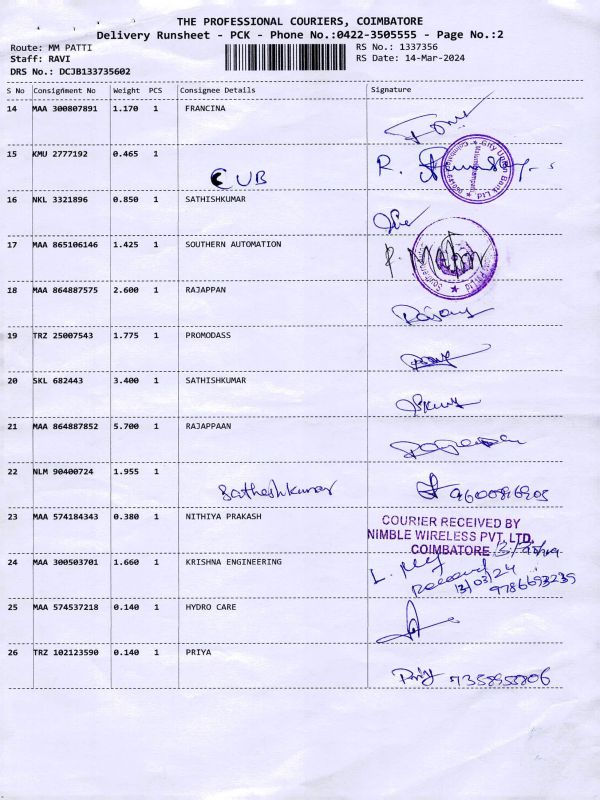 THE PROFESSIONAL COURIERS, COIMBATORE
Delivery Runsheet - PCK - Phone No.:0422-3505555 - Page No.:2
Route: MM PATTI RS No.: 1337356
Staff: RAVI RS Date: 14-Mar-2024
DRS No.: DCJB133735602
S No Consignment No Weight PCS Consignee Details Signature
14 MAA 300807891 1.170 1 FRANCINA
15 KMU 2777192 0.465 1
CUB R.
City Union Bank Ltd
16 NKL 3321896 0.850 1 SATHISHKUMAR
17 MAA 865106146 1.425 1 SOUTHERN AUTOMATION
18 MAA 864887575 2.600 1 RAJAPPAN
19 TRZ 25007543 1.775 1 PROMODASS
20 SKL 682443 3.400 1 SATHISHKUMAR
21 MAA 864887852 5.700 1 RAJAPPAAN
22 NLM 90400724 1.955 1
Satheshkumar
23 MAA 574184343 0.380 1 NITHIYA PRAKASH
COURIER RECEIVED BY
NIMBLE WIRELESS PVT. LTD.
COIMBATORE
24 MAA 300503701 1.660 1 KRISHNA ENGINEERING
Received
13/03/24
9786693239
25 MAA 574537218 0.140 1 HYDRO CARE
26 TRZ 102123590 0.140 1 PRIYA
Priy 7358955806